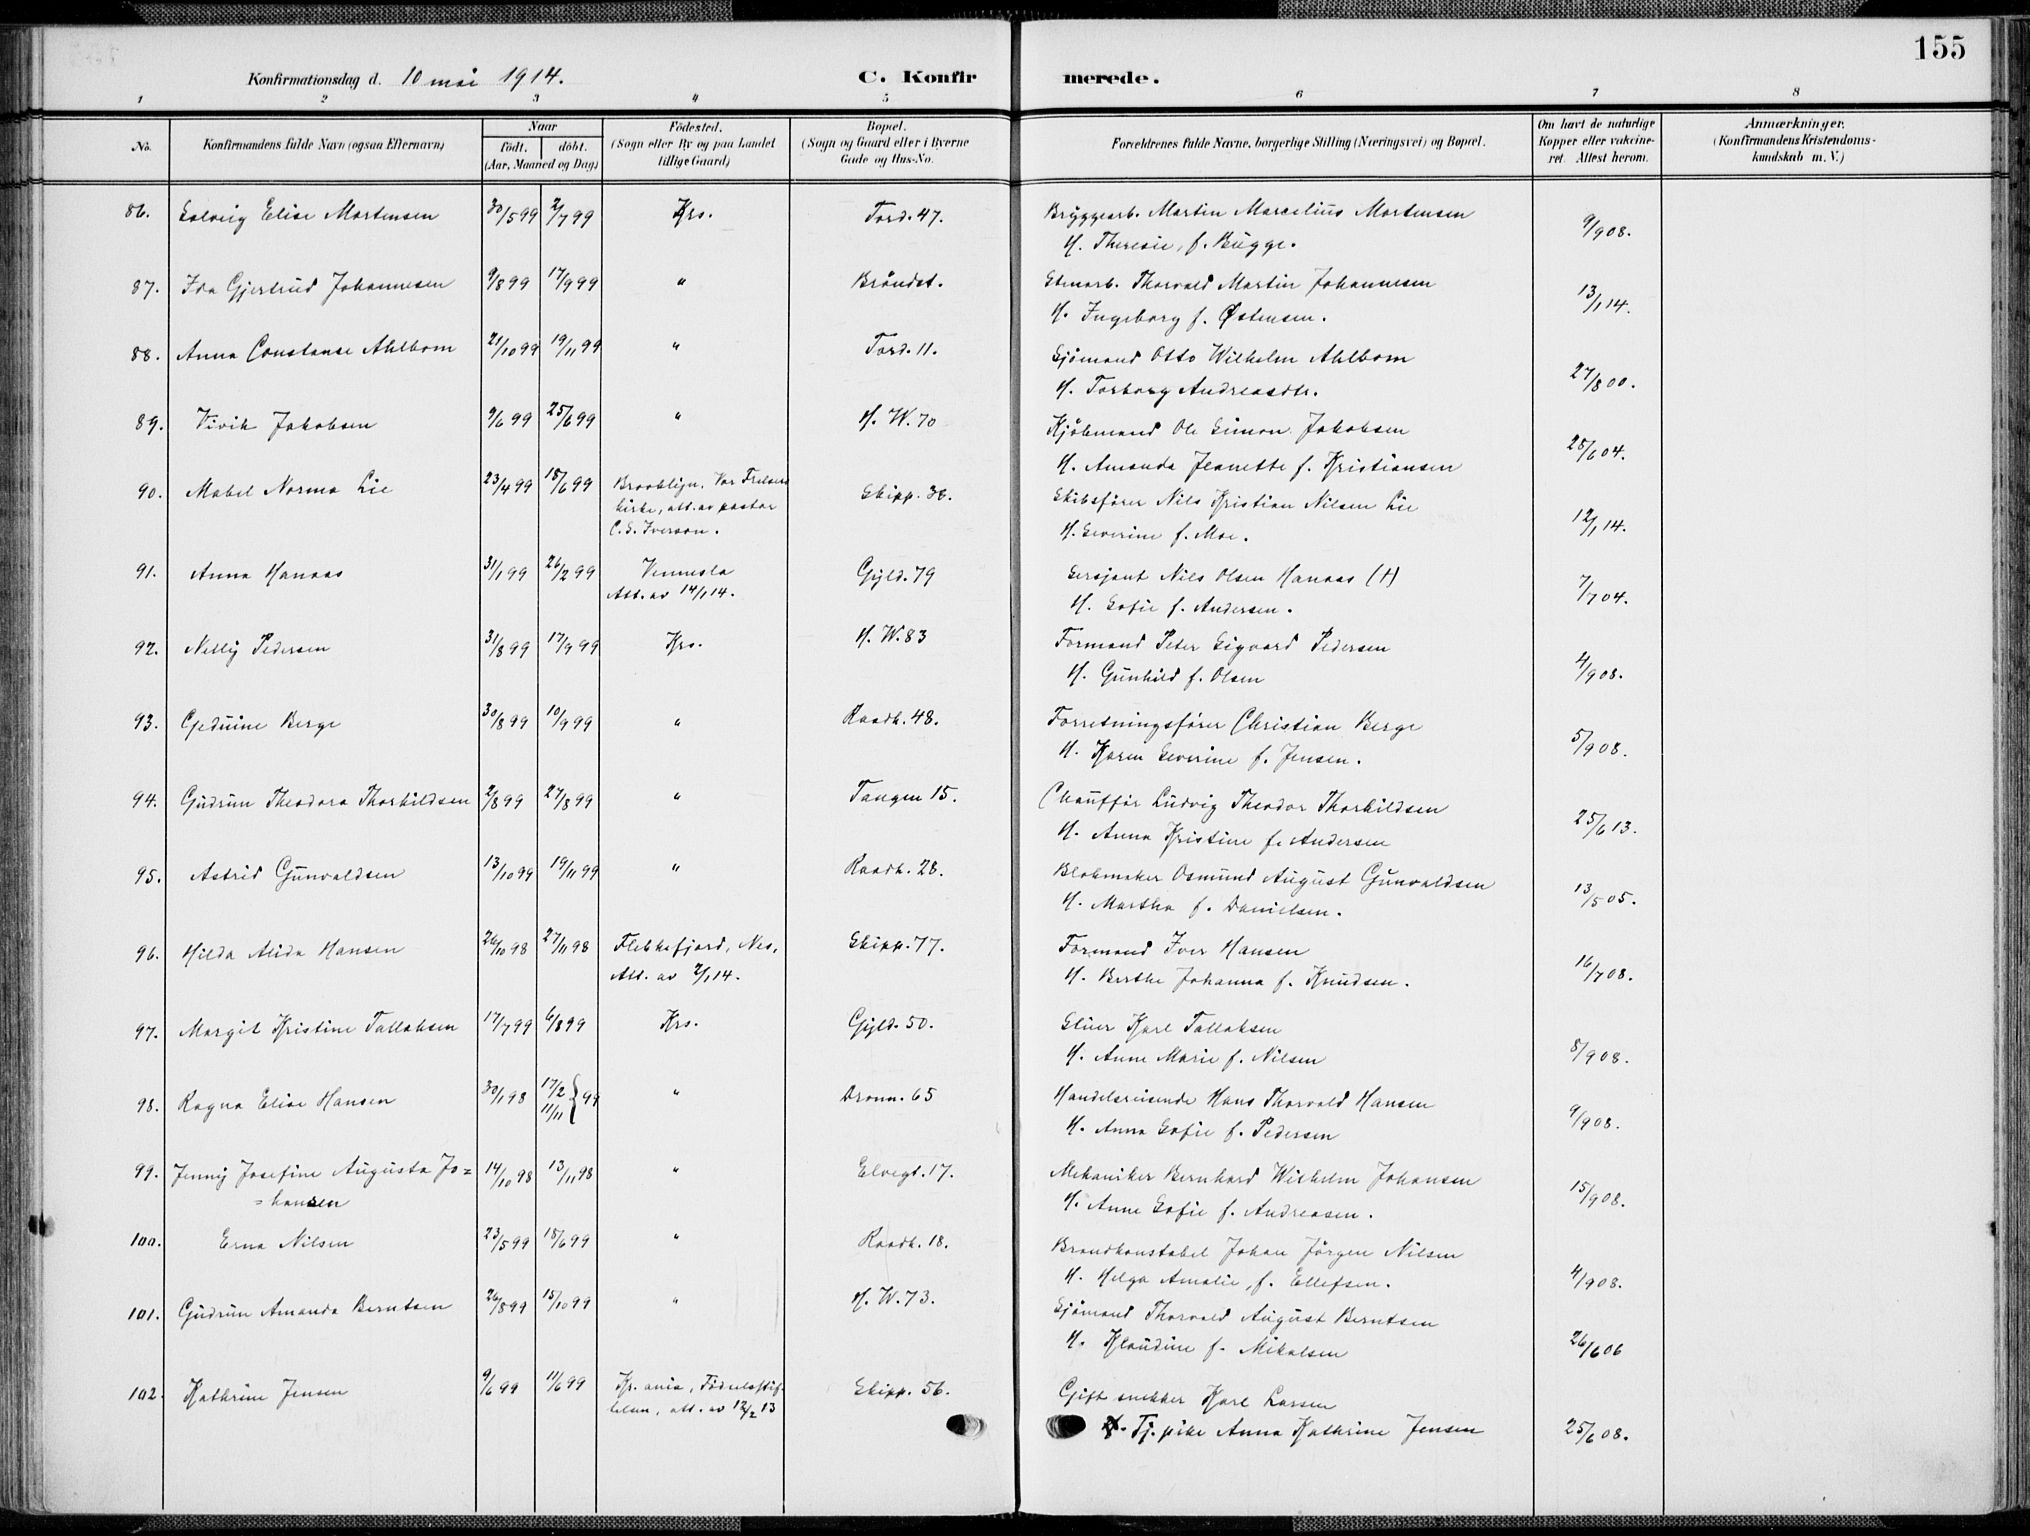 155
Konfirmationsdag d. 10 mai 1914. C. Konfirmerede.
1 2 3 4 5 6 7 8
No. Konfirmandens fulde Navn (ogsaa Efternavn) Naar født. døbt. (Aar, Maaned og Dag) Fødested. (Sogn eller By og paa Landet tillige Gaard) Bopæl. (Sogn og Gaard eller i Byerne Gade og Hus-No. Forældrenes fulde Navne, borgerlige Stilling (Næringsvei) og Bopæl. Om havt de naturlige Kopper eller vakcineret. Attest herom. Anmærkninger. (Konfirmandens Kristendomskundskab m. V.)
86. Solveig Elise Mortensen 30/5 99 2/7 99 Krs. Tord. 47. Bryggearb. Martin Marcelius Mortensen
H. Theresie, f. Bugge. 9/9 08.
87. Ida Gjertrud Johannesen 9/8 99 17/9 99 " Brøndst. Stenarb. Thorvald Martin Johannesen
H. Ingeborg f. Østensen. 13/1 14.
88. Anna Constanse Ahlbom 21/10 99 19/11 99 " Tord. 11. Sjømand Otto Wilhelm Ahlbom
H. Torborg Andreasdtr. 27/8 00.
89. Vivik Jakobsen 9/6 99 25/6 99 " H. W. 70 Kjøbmand Ole Simon Jakobsen
H. Amanda Jeanette f. Kristiansen 28/6 04.
90. Mabel Norma Lie 23/4 99 18/6 99 Brooklyn, Vor Frelsers Skipp. 38. Skibsfører Nils Kristian Nilsen Lie
kirke, att. av pastor
C. S. Iverson. H. Severine f. Moe. 12/1 14.
91. Anna Hanaas 31/1 99 26/2 99 Vennesla Gyld. 79 Sersjant Nils Olsen Hanaas (†)
Att. av 14/1 14. H. Sofie f. Andersen. 7/7 04.
92. Nelly Pedersen 31/8 99 17/9 99 Krs. H. W. 83 Formand Peter Sigvard Pedersen
H. Gunhild f. Olsen 4/9 08.
93. Gjeduine Berge 30/8 99 10/9 99 " Raadh. 48. Forretningsfører Christian Berge
H. Karen Severine f. Jensen. 5/9 08.
94. Gudrun Theodora Thorkildsen 2/8 99 27/8 99 " Tangen 15. Chauffør Ludvig Theodor Thorkildsen
H. Anna Kristine f. Andersen 25/6 13.
95. Astrid Gunvaldsen 13/10 99 19/11 99 " Raadh. 28. Blokmaker Osmund August Gunvaldsen
H. Martha f. Danielsen. 13/5 05.
96. Hilda Alida Hansen 26/10 98 27/11 98 Flekkefjord, Nes, Skipp. 77. Formand Iver Hansen
Att. av 2/1 14. H. Berthe Johanna f. Knudsen. 16/7 08.
97. Margit Kristine Tallaksen 17/7 99 6/8 99 Krs. Gyld. 50. Stuer Karl Tallaksen
H. Anne Marie f. Nilsen 8/9 08.
98. Ragna Elise Hansen 30/1 98 17/2 11/11 } 99 " Dronn. 65 Handelsreisende Hans Thorvald Hansen
H. Anna Sofie f. Pedersen 9/9 08.
99. Jenny Josefine Augusta Jo= 14/10 98 13/11 98 " Elvegt. 17. Mekaniker Bernhard Wilhelm Johansen
=hansen H. Anne Sofie f. Andreasen. 15/9 08.
100. Erna Nilsen 23/5 99 18/6 99 " Raadh. 18. Brandkonstabel Johan Jørgen Nilsen
H. Helga Amalie, f. Ellefsen. 4/9 08.
101. Gudrun Amanda Berntsen 26/8 99 15/10 99 " H. W. 73. Sjømand Thorvald August Berntsen
H. Klaudine f. Mikalsen 26/6 06
102. Kathrine Jensen 9/6 99 11/6 99 Kr.ania, Fødselsstif- Skipp. 56. Gift snekker Karl Larsen
telsen, att. av 12/2 13 Tj. pike Anna Kathrine Jensen 25/6 08.